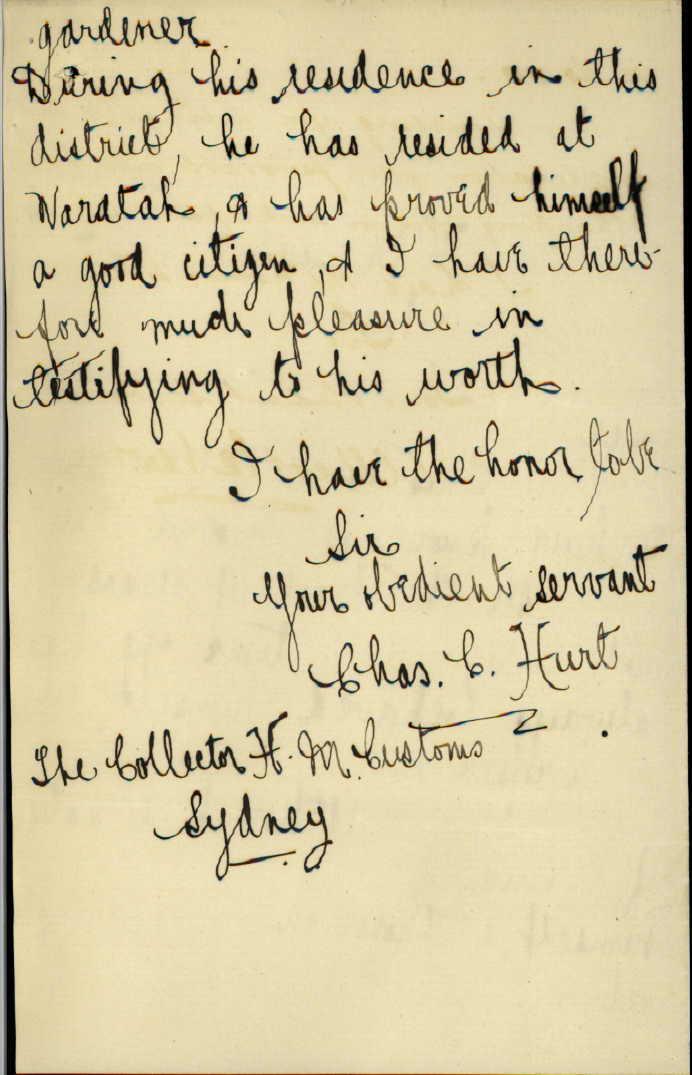 gardener
During his residence in this
district, he has resided at
Waratah, & has proved himself
a good citizen, & I have there-
fore much pleasure in
testifying to his worth.
I have the honor to be
Sir
Your obedient servant
Chas. C. Hurt
The Collector H. M. Customs
Sydney